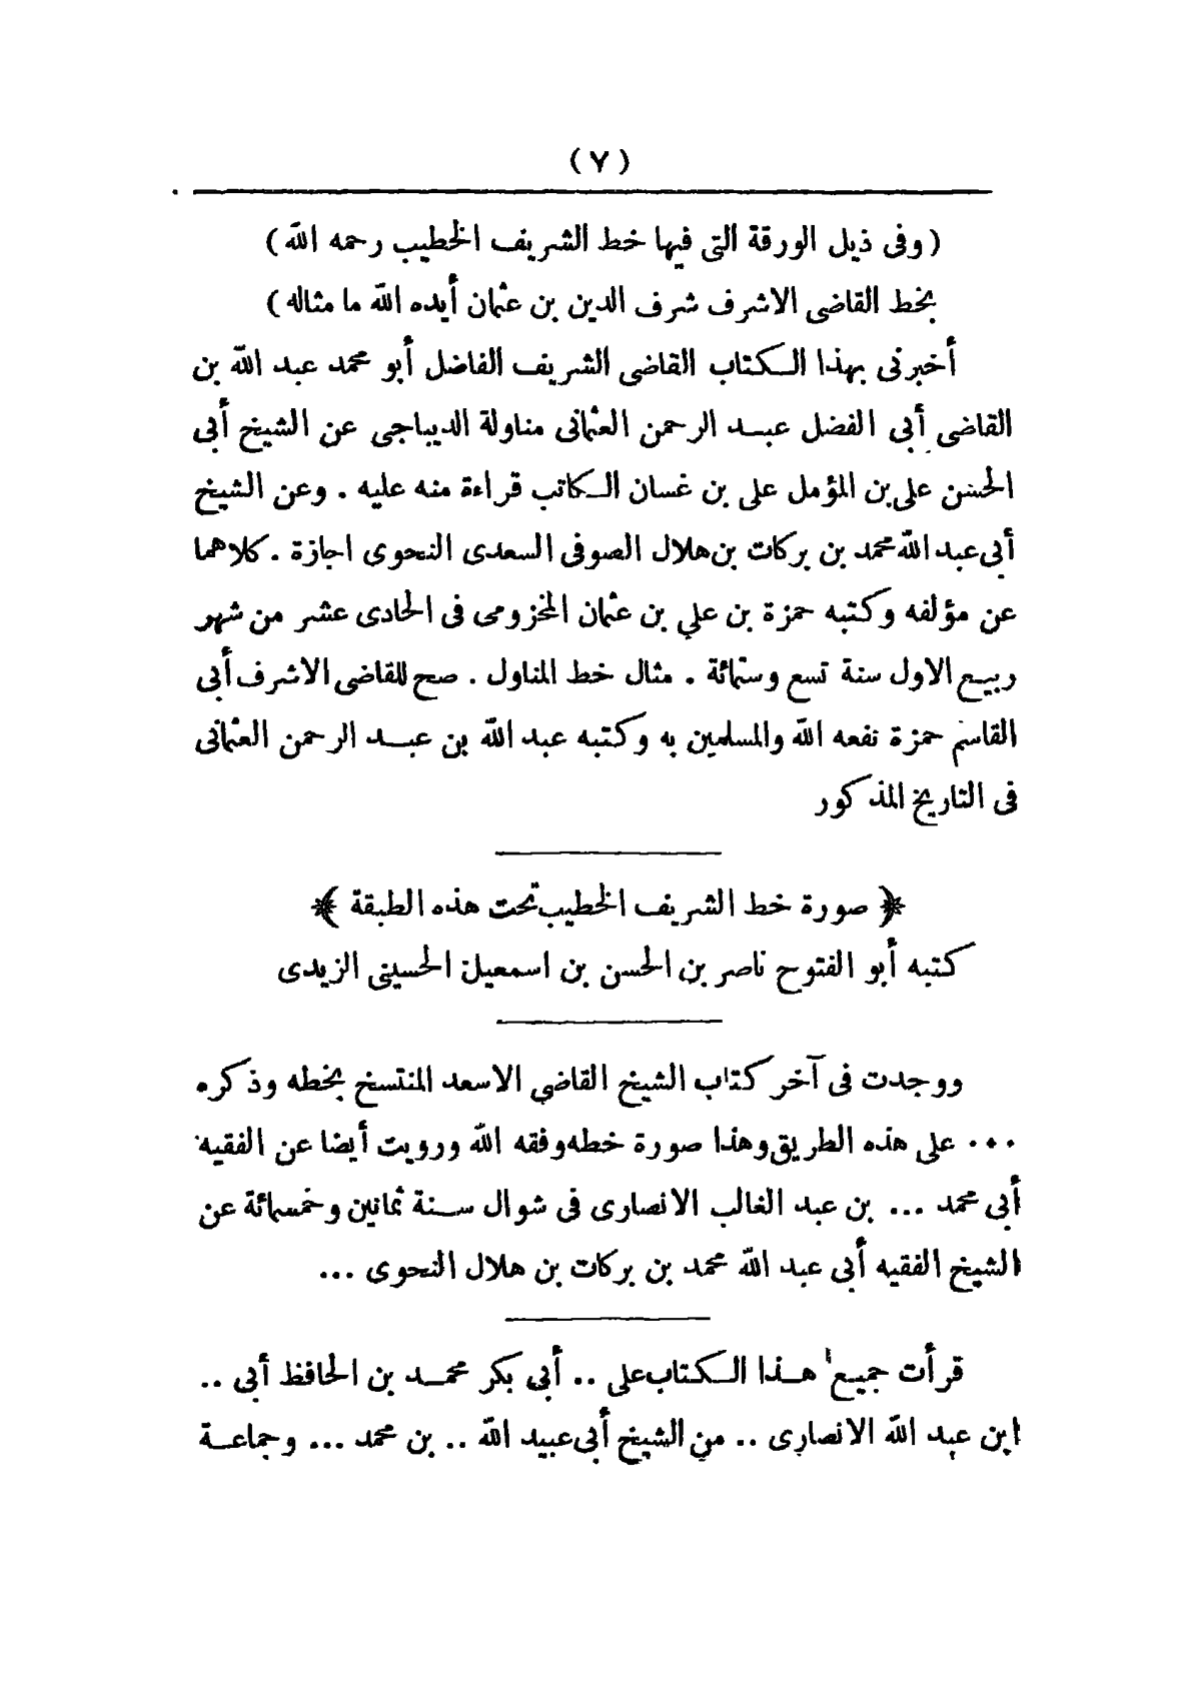 ( ٧ )
( وفى ذيل الورقة التى فيها خط الشريف الخطيب رحمه الله )
بخط القاضى الاشرف شرف الدين بن عثمان أيده الله ما مثاله )
أخبرنى بهذا الكتاب القاضى الشريف الفاضل أبو محمد عبد الله بن
القاضى أبى الفضل عبد الرحمن العثمانى مناولة الديباجى عن الشيخ أبى
الحسن على بن المؤمل على بن غسان الكاتب قراءة منه عليه . وعن الشيخ
أبى عبد الله محمد بن بركات بن هلال الصوفى السعدى النحوى اجازة . كلاهما
عن مؤلفه وكتبه حمزة بن علي بن عثمان المخزومى فى الحادى عشر من شهر
ربيع الاول سنة تسع وستمائة . مثال خط المناول . صح للقاضى الاشرف أبى
القاسم حمزة نفعه الله والمسلمين به وكتبه عبد الله بن عبد الرحمن العثمانى
فى التاريخ المذكور
﴿ صورة خط الشريف الخطيب تحت هذه الطبقة ﴾
كتبه أبو الفتوح ناصر بن الحسن بن اسمعيل الحسينى الزيدى
ووجدت فى آخر كتاب الشيخ القاضى الاسعد المنتسخ بخطه وذكره
... على هذه الطريق وهذا صورة خطه وفقه الله ورويت أيضا عن الفقيه
أبى محمد ... بن عبد الغالب الانصارى فى شوال سنة ثمانين وخمسمائة عن
الشيخ الفقيه أبى عبد الله محمد بن بركات بن هلال النحوى ...
قرأت جميع هذا الكتاب على .. أبى بكر محمد بن الحافظ أبى ..
ابن عبد الله الانصارى .. من الشيخ أبى عبيد الله .. بن محمد ... وجماعة